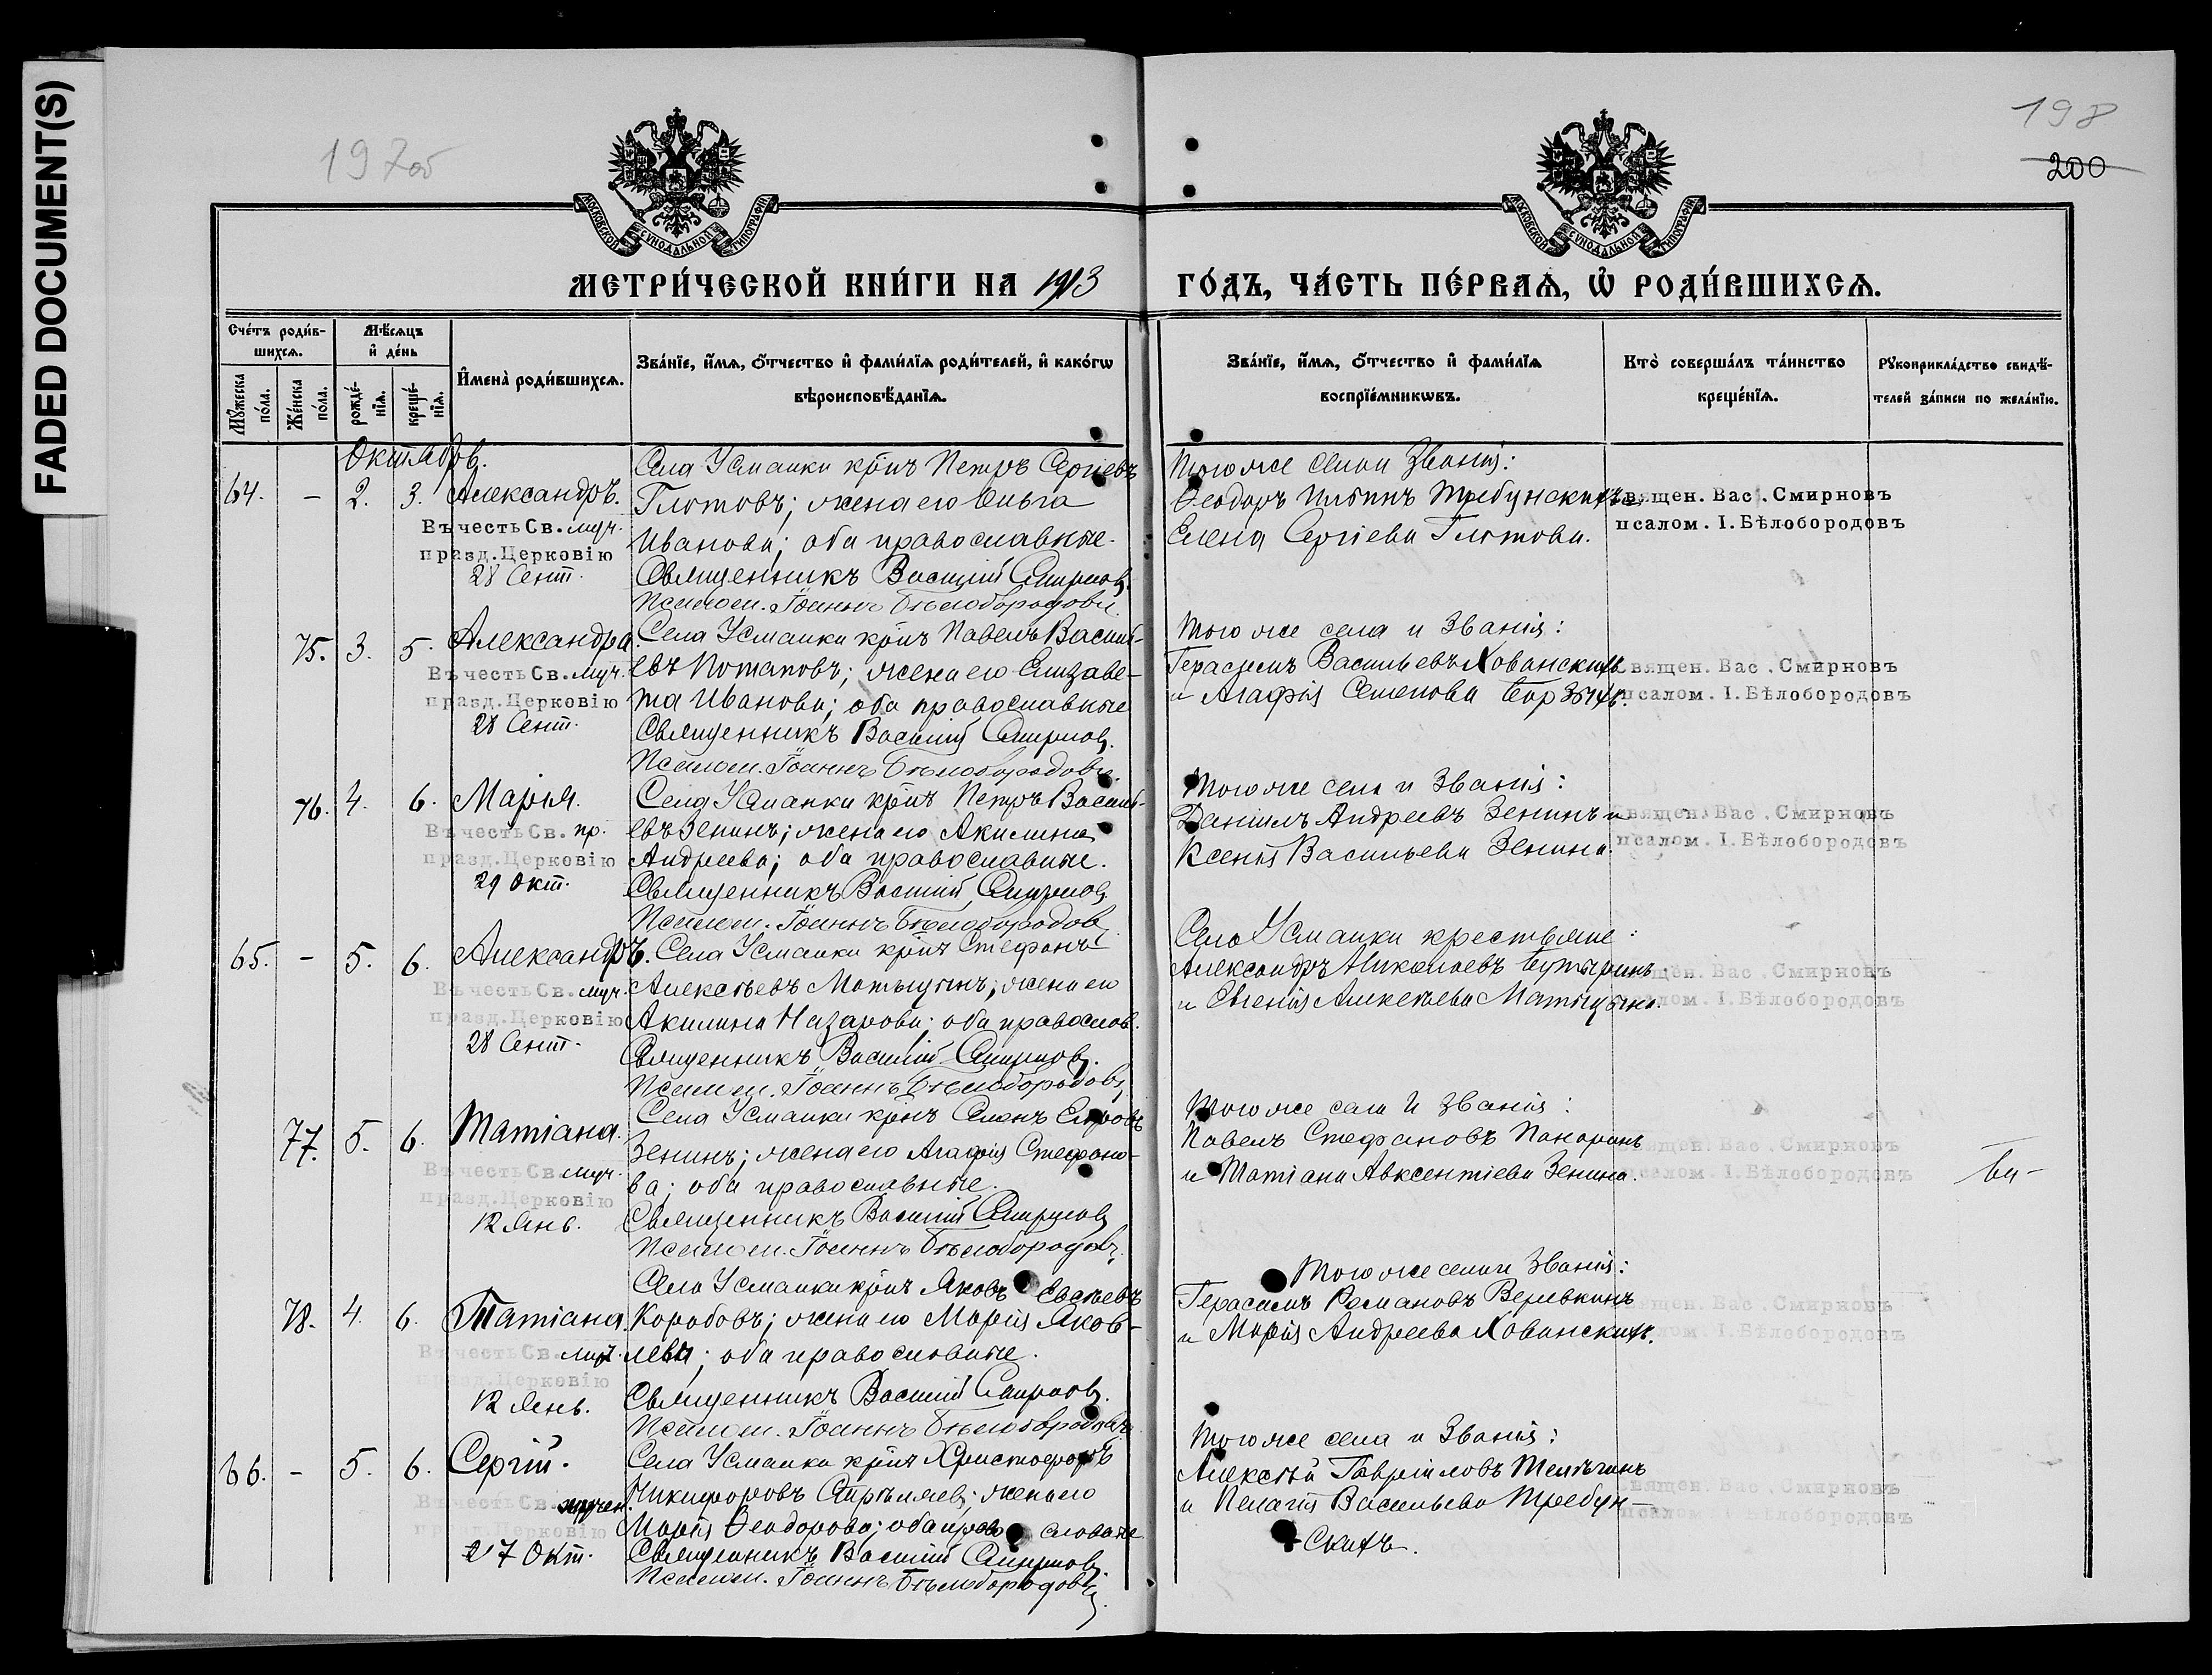 FADED DOCUMENT(S)
197об
198
200
МОСКОВСКОЙ СУНОДАЛЬНОЙ ТИПОГРАФІИ
МОСКОВСКОЙ СУНОДАЛЬНОЙ ТИПОГРАФІИ
МЕТРИ́ЧЕСКОЙ КНИ́ГИ НА 1913
ГО́ДЪ, ЧА́СТЬ ПЕ́РВАѦ, Ѡ҆ РОДИ́ВШИХСѦ.
Сче́тъ роди́в-
шихсѧ.
Мꙋ́жеска по́ла.
Же́нска по́ла.
Мѣ́сѧцъ
и҆ де́нь
рожде́-
нїѧ.
креще́-
нїѧ.
И҆мена̀ роди́вшихсѧ.
Зва́нїе, и҆́мѧ, ѻ҆́тчество и҆ фами́лїѧ роди́телей, и҆ како́гѡ
вѣроисповѣ́данїѧ.
Зва́нїе, и҆́мѧ, ѻ҆́тчество и҆ фами́лїѧ
воспрїе́мникѡвъ.
Кто̀ соверша́лъ та́инство
креще́нїѧ.
Рꙋкоприкла́дство свидѣ́-
телей за́писи по жела́нїю.
Октябрь.
64. - 2. 3. Александръ.
Въ честь Св. муч.
празд. Церковію
28 Сент.
Села Усманки кр̃нъ Петръ Сергіевъ
Глотовъ; жена его Ольга
Иванова; оба православные.
Священникъ Василій Смирновъ.
Псалом. Іоаннъ Бѣлобородовъ.
Того же села и Званія:
Ѳеодоръ Ильинъ Требунскихъ и
Елена Сергіева Глотова.
Священ. Вас. Смирновъ
псалом. І. Бѣлобородовъ
75. 3. 5. Александра.
Въ честь Св. муч.
празд. Церковію
28 Сент.
Села Усманки кр̃нъ Павелъ Василь-
евъ Потаповъ; жена его Елизаве-
та Иванова; оба православные
Священникъ Василій Смирновъ.
Псалом. Іоаннъ Бѣлобородовъ.
Того же села и Званія:
Герасимъ Васильевъ Хованскихъ
и Агафія Семенова Борзыхъ.
Священ. Вас. Смирновъ
псалом. І. Бѣлобородовъ
76. 4. 6. Марія.
Въ честь Св. пр.
празд. Церковію
29 Окт.
Села Усманки кр̃нъ Петръ Василь-
евъ Зенинъ; жена его Акилина
Андреева; оба православные.
Священникъ Василій Смирновъ
Псалом. Іоаннъ Бѣлобородовъ
Того же села и Званія:
Даніилъ Андреевъ Зенинъ и
Ксенія Васильева Зенина.
Священ. Вас. Смирновъ
псалом. І. Бѣлобородовъ
65. - 5. 6. Александръ.
Въ честь Св. муч.
празд. Церковію
28 Сент.
Села Усманки кр̃нъ Стефанъ
Алексѣевъ Матыцынъ; жена его
Акилина Назарова; оба православ.
Священникъ Василій Смирновъ.
Псалом. Іоаннъ Бѣлобородовъ
Села Усманки крестьяне:
Александръ Николаевъ Бутыринъ
и Евгенія Алексѣева Матыцына.
Священ. Вас. Смирновъ
псалом. І. Бѣлобородовъ
77. 5. 6. Татіана.
Въ честь Св. муч.
празд. Церковію
12 Янв.
Села Усманки кр̃нъ
Зенинъ; жена его Агафія Стефано-
ва; оба православные.
Священникъ Василій Смирновъ
Псалом. Іоаннъ Бѣлобородовъ.
Того же села и званія:
Павелъ Стефановъ Панаринъ
и Татіана Авксентіева Зенина.
Священ. Вас. Смирновъ
псалом. І. Бѣлобородовъ
78. 4. 6. Татіана.
Въ честь Св. муч.
празд. Церковію
12 Янв.
Села Усманки кр̃нъ Яковъ Евсѣевъ
Коробовъ; жена его Марія Яков-
лева; оба православные.
Священникъ Василій Смирновъ.
Псалом. Іоаннъ Бѣлобородовъ
Того же села и Званія:
Герасимъ Романовъ Веревкинъ
и Марія Андреева Хованскихъ.
Священ. Вас. Смирновъ
псалом. І. Бѣлобородовъ
66. - 5. 6. Сергій.
Въ честь Св. мучен.
празд. Церковію
7 Окт.
Села Усманки кр̃нъ Христофоръ
Никифоровъ; жена его
Марія Ѳеодорова; оба православные
Священникъ Василій Смирновъ.
Псалом. Іоаннъ Бѣлобородовъ.
Того же села и Званія:
Алексѣй Гавріиловъ Телѣгинъ
и Пелагія Васильева Требун-
скихъ.
Священ. Вас. Смирновъ
псалом. І. Бѣлобородовъ